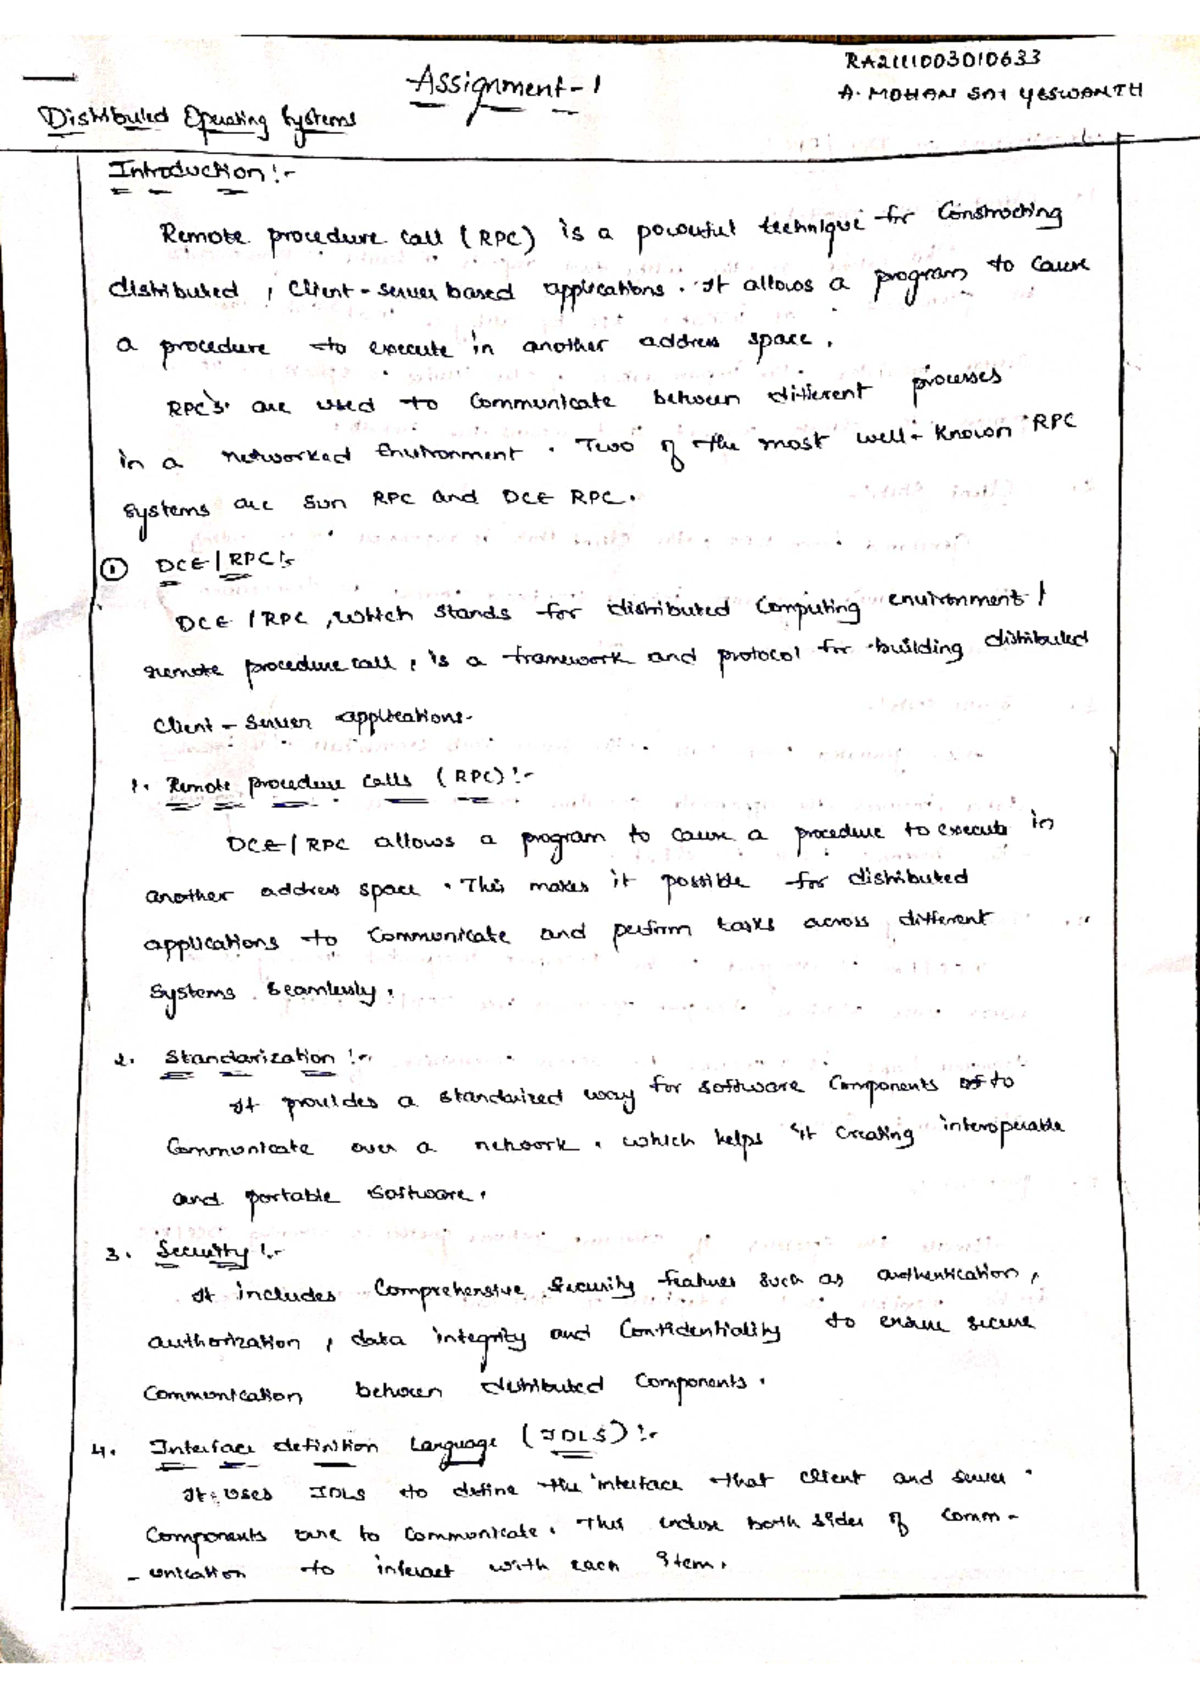 Assignment-1
RA2111003010633
A. MOHAN SAI YESWANTH
Distributed Operating Systems
Introduction:-
Remote procedure call (RPC) is a powerful technique for Constructing
distributed, Client-server based applications. It allows a program to cause
a procedure to execute in another address space.
RPC's are used to Communicate between different processes
in a networked Environment. Two of the most well-known RPC
systems are Sun RPC and DCE RPC.
① DCE/RPC:-
DCE/RPC, which stands for distributed Computing environment/
remote procedure call, is a framework and protocol for building distributed
Client-Server applications.
1. Remote procedure calls (RPC):-
DCE/RPC allows a program to cause a procedure to execute in
another address space. This makes it possible for distributed
applications to Communicate and perform tasks across different
Systems seamlessly.
2. Standarization:-
It provides a standarized way for software Components to
Communicate over a network. which helps it Creating interoperable
and portable software.
3. Security:-
It includes Comprehensive Security features such as authentication,
authorization, data integrity and Confidentiality to ensure secure
Communication between distributed Components.
4. Interface definition Language (IDLS):-
It uses IDLS to define the interface that client and server
Components use to Communicate. This both sides of comm-
-unication to interact with each